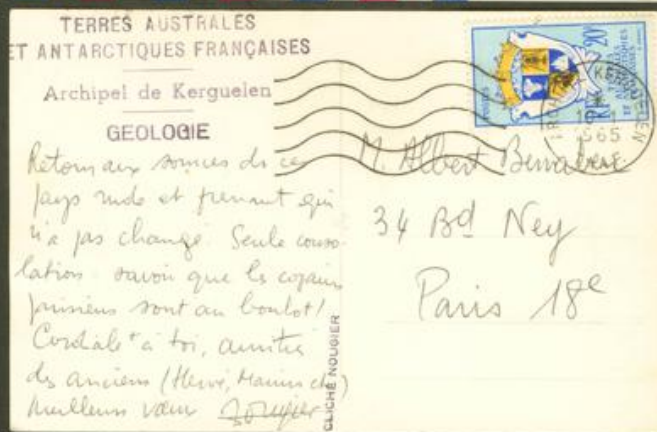 TERRES AUSTRALES
ET ANTARCTIQUES FRANÇAISES
Archipel de Kerguelen
GEOLOGIE
Retour aux sources de ce
pays rude et prenant qui
n'a pas changé. Seule conso-
lation savoir que les copains
parisiens sont au boulot!
Cordialt à toi, amitiés
des anciens (Hervé, etc)
meilleurs vœux Nougier
CLICHÉ NOUGIER
POSTES
20F
RF
TERRES
AUSTRALES
ET ANTARCTIQUES
FRANÇAISES
KERGUELEN
1965
M. Albert
34 Bd Ney
Paris 18e